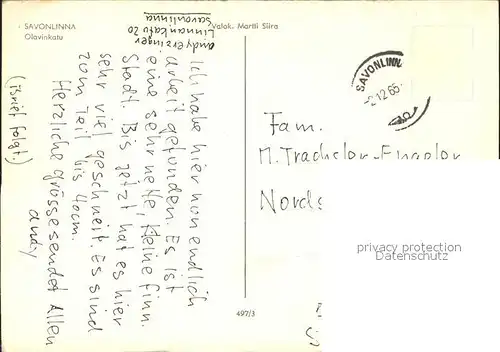 SAVONLINNA
Olavinkatu
Valok. Martti Siira
andy erzinger
Linnankatu 20
Savonlinna
Ich habe hier nun endlich
arbeit gefunden. Es ist
eine sehr nette, kleine finn.
Stadt. Bis jetzt hat es hier
sehr viel geschneit. Es sind
zum Teil bis 40cm.
Herzliche grüsse sendet Allen
andy
(brief folgt.)
SAVONLINN
-2.12.65
Fam.
M. Trachsler-Engeler
Nords
privacy protection
Datenschutz
497/3